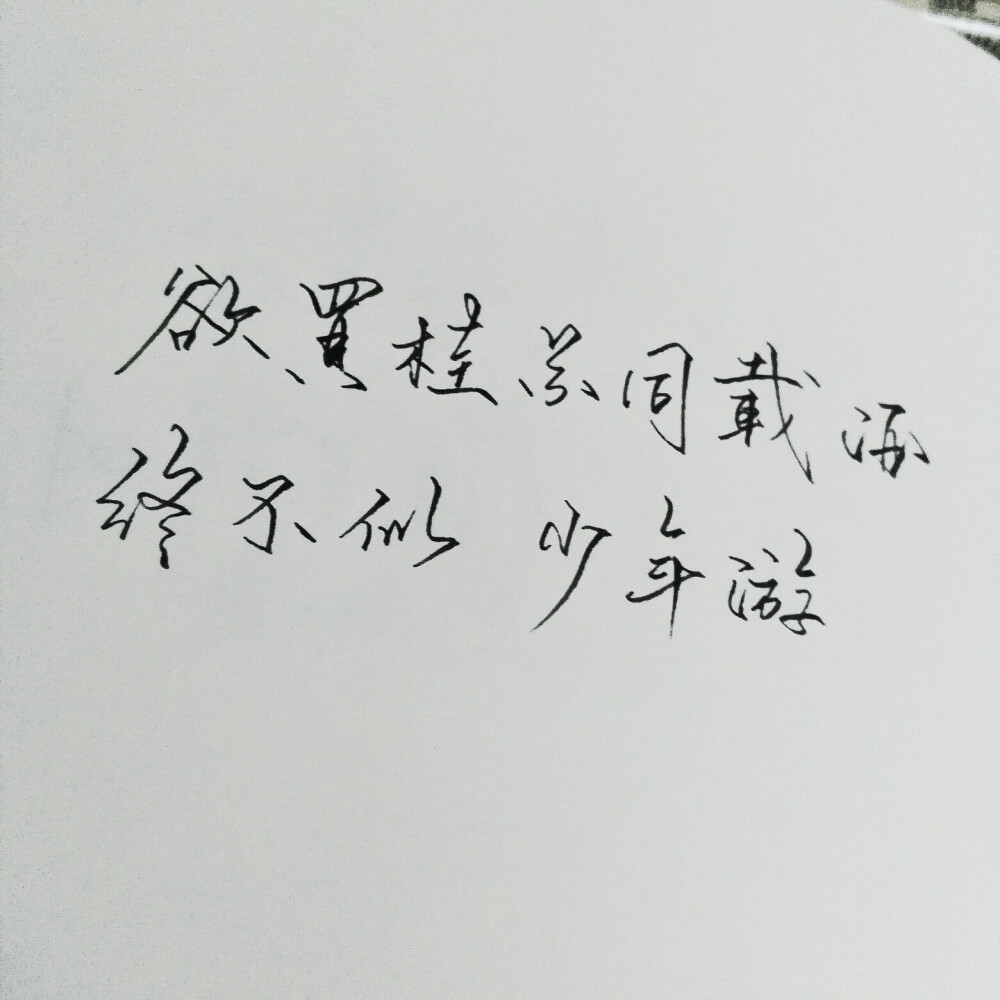 欲買桂花同載酒
终不似 少年游